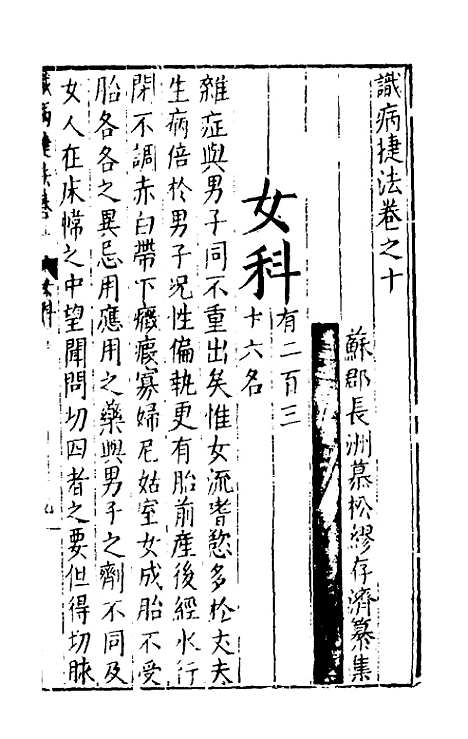 識病捷法卷之十
蘇郡長洲慕松繆存濟纂集
女科
有二百三
十六名
雜症與男子同不重出矣惟女流嗜慾多於丈夫
生病倍於男子況性偏執更有胎前産後經水行
閉不調赤白帶下癥瘕寡婦尼姑室女成胎不受
胎各各之異忌用應用之藥與男子之劑不同及
女人在床幃之中望聞問切四者之要但得切脉
識病捷法卷
女科